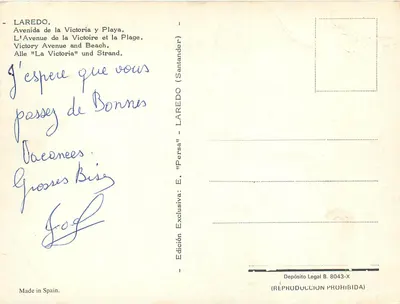 LAREDO.
Avenida de la Victoria y Playa.
L'Avenue de la Victoire et la Plage.
Victory Avenue and Beach.
Alle "La Victoria" und Strand.
J'espere que vous
passez de Bonnes
Vacances.
Grosses Bises
Joël
Made in Spain.
Edición Exclusiva: E. "Persa" - LAREDO (Santander)
Depósito Legal B. 8043-X
(REPRODUCCION PROHIBIDA)